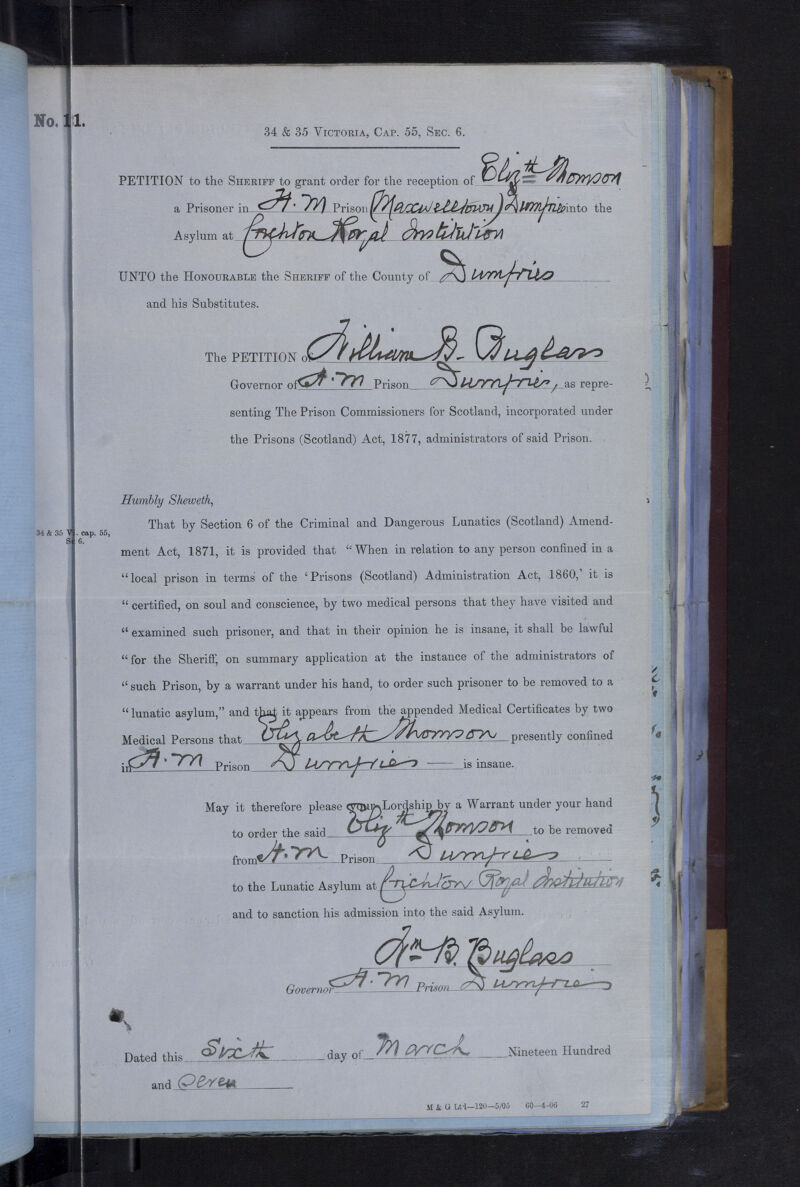 No. 11.
34 & 35 VICTORIA, CAP. 55, SEC. 6.
PETITION to the SHERIFF to grant order for the reception of Elizth Thomson
a Prisoner in H.M Prison (Maxwelltown) Dumfries into the
Asylum at Crichton Royal Institution
UNTO the HONOURABLE the SHERIFF of the County of Dumfries
and his Substitutes.
The PETITION of William B. Buglass
Governor of H.M Prison Dumfries, as repre-
senting The Prison Commissioners for Scotland, incorporated under
the Prisons (Scotland) Act, 1877, administrators of said Prison.
Humbly Sheweth,
34 & 35 V. cap. 55,
6.
That by Section 6 of the Criminal and Dangerous Lunatics (Scotland) Amend-
ment Act, 1871, it is provided that "When in relation to any person confined in a
"local prison in terms of the 'Prisons (Scotland) Administration Act, 1860,' it is
"certified, on soul and conscience, by two medical persons that they have visited and
"examined such prisoner, and that in their opinion he is insane, it shall be lawful
"for the Sheriff, on summary application at the instance of the administrators of
"such Prison, by a warrant under his hand, to order such prisoner to be removed to a
"lunatic asylum," and that it appears from the appended Medical Certificates by two
Medical Persons that Elizabeth Thomson presently confined
in H.M Prison Dumfries — is insane.
May it therefore please your Lordship by a Warrant under your hand
to order the said Elizth Thomson to be removed
from H.M Prison Dumfries
to the Lunatic Asylum at Crichton Royal Institution
and to sanction his admission into the said Asylum.
Wm B. Buglass
Governor H.M Prison Dumfries
Dated this Sixth day of March Nineteen Hundred
and Seven
M & G Ltd—120—5/05 60—4-06 27